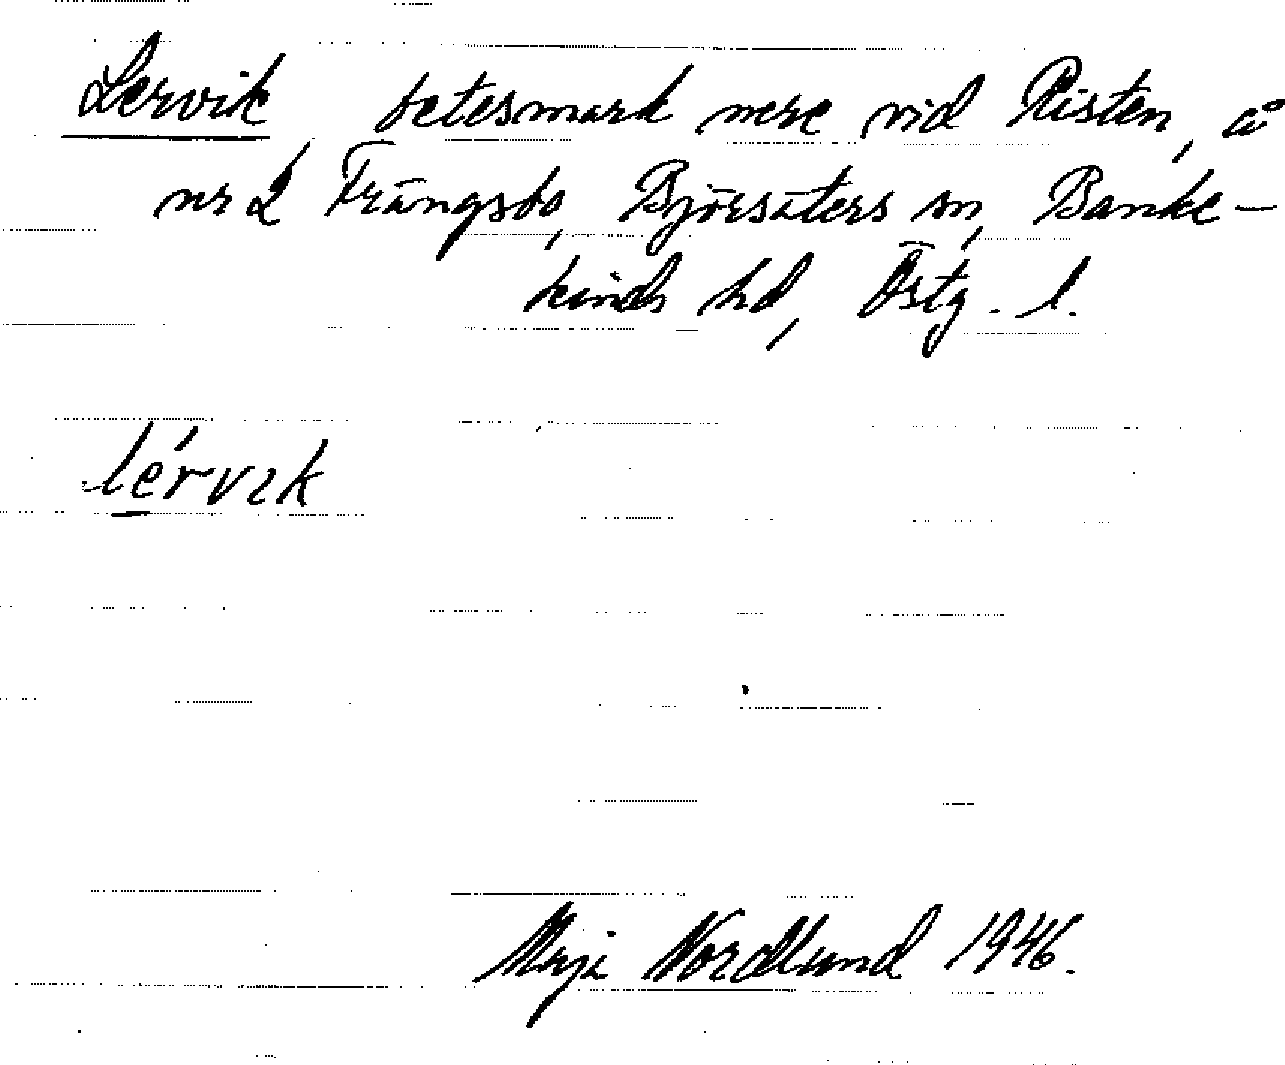 Lervik, betesmark nere vid Risten, å
nr 2 Trängsbo, Björsäters sn, Banke-
kinds hd, Östg. l.
lérvik
Maji Nordlund 1946.